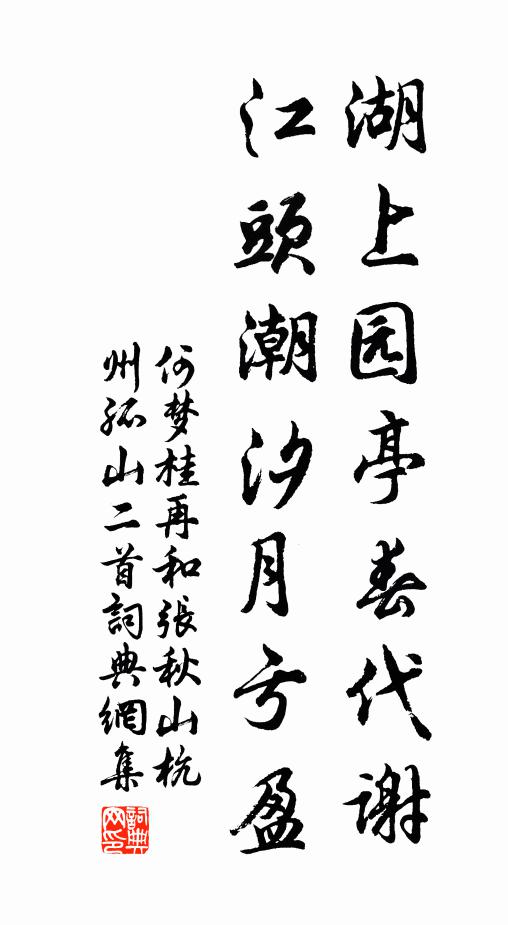 湖上园亭春代谢
江頭潮汐月亏盈
何梦桂再和張秋山杭
州孤山二首詞典網集
詞典
网印